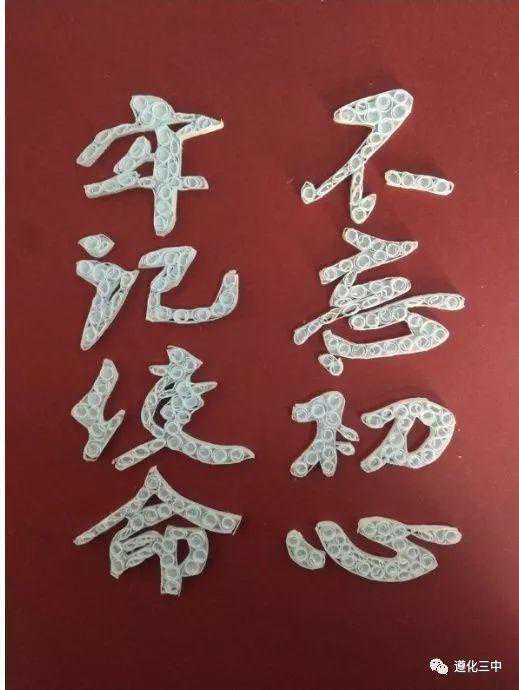 不忘初心
牢记使命
遵化三中